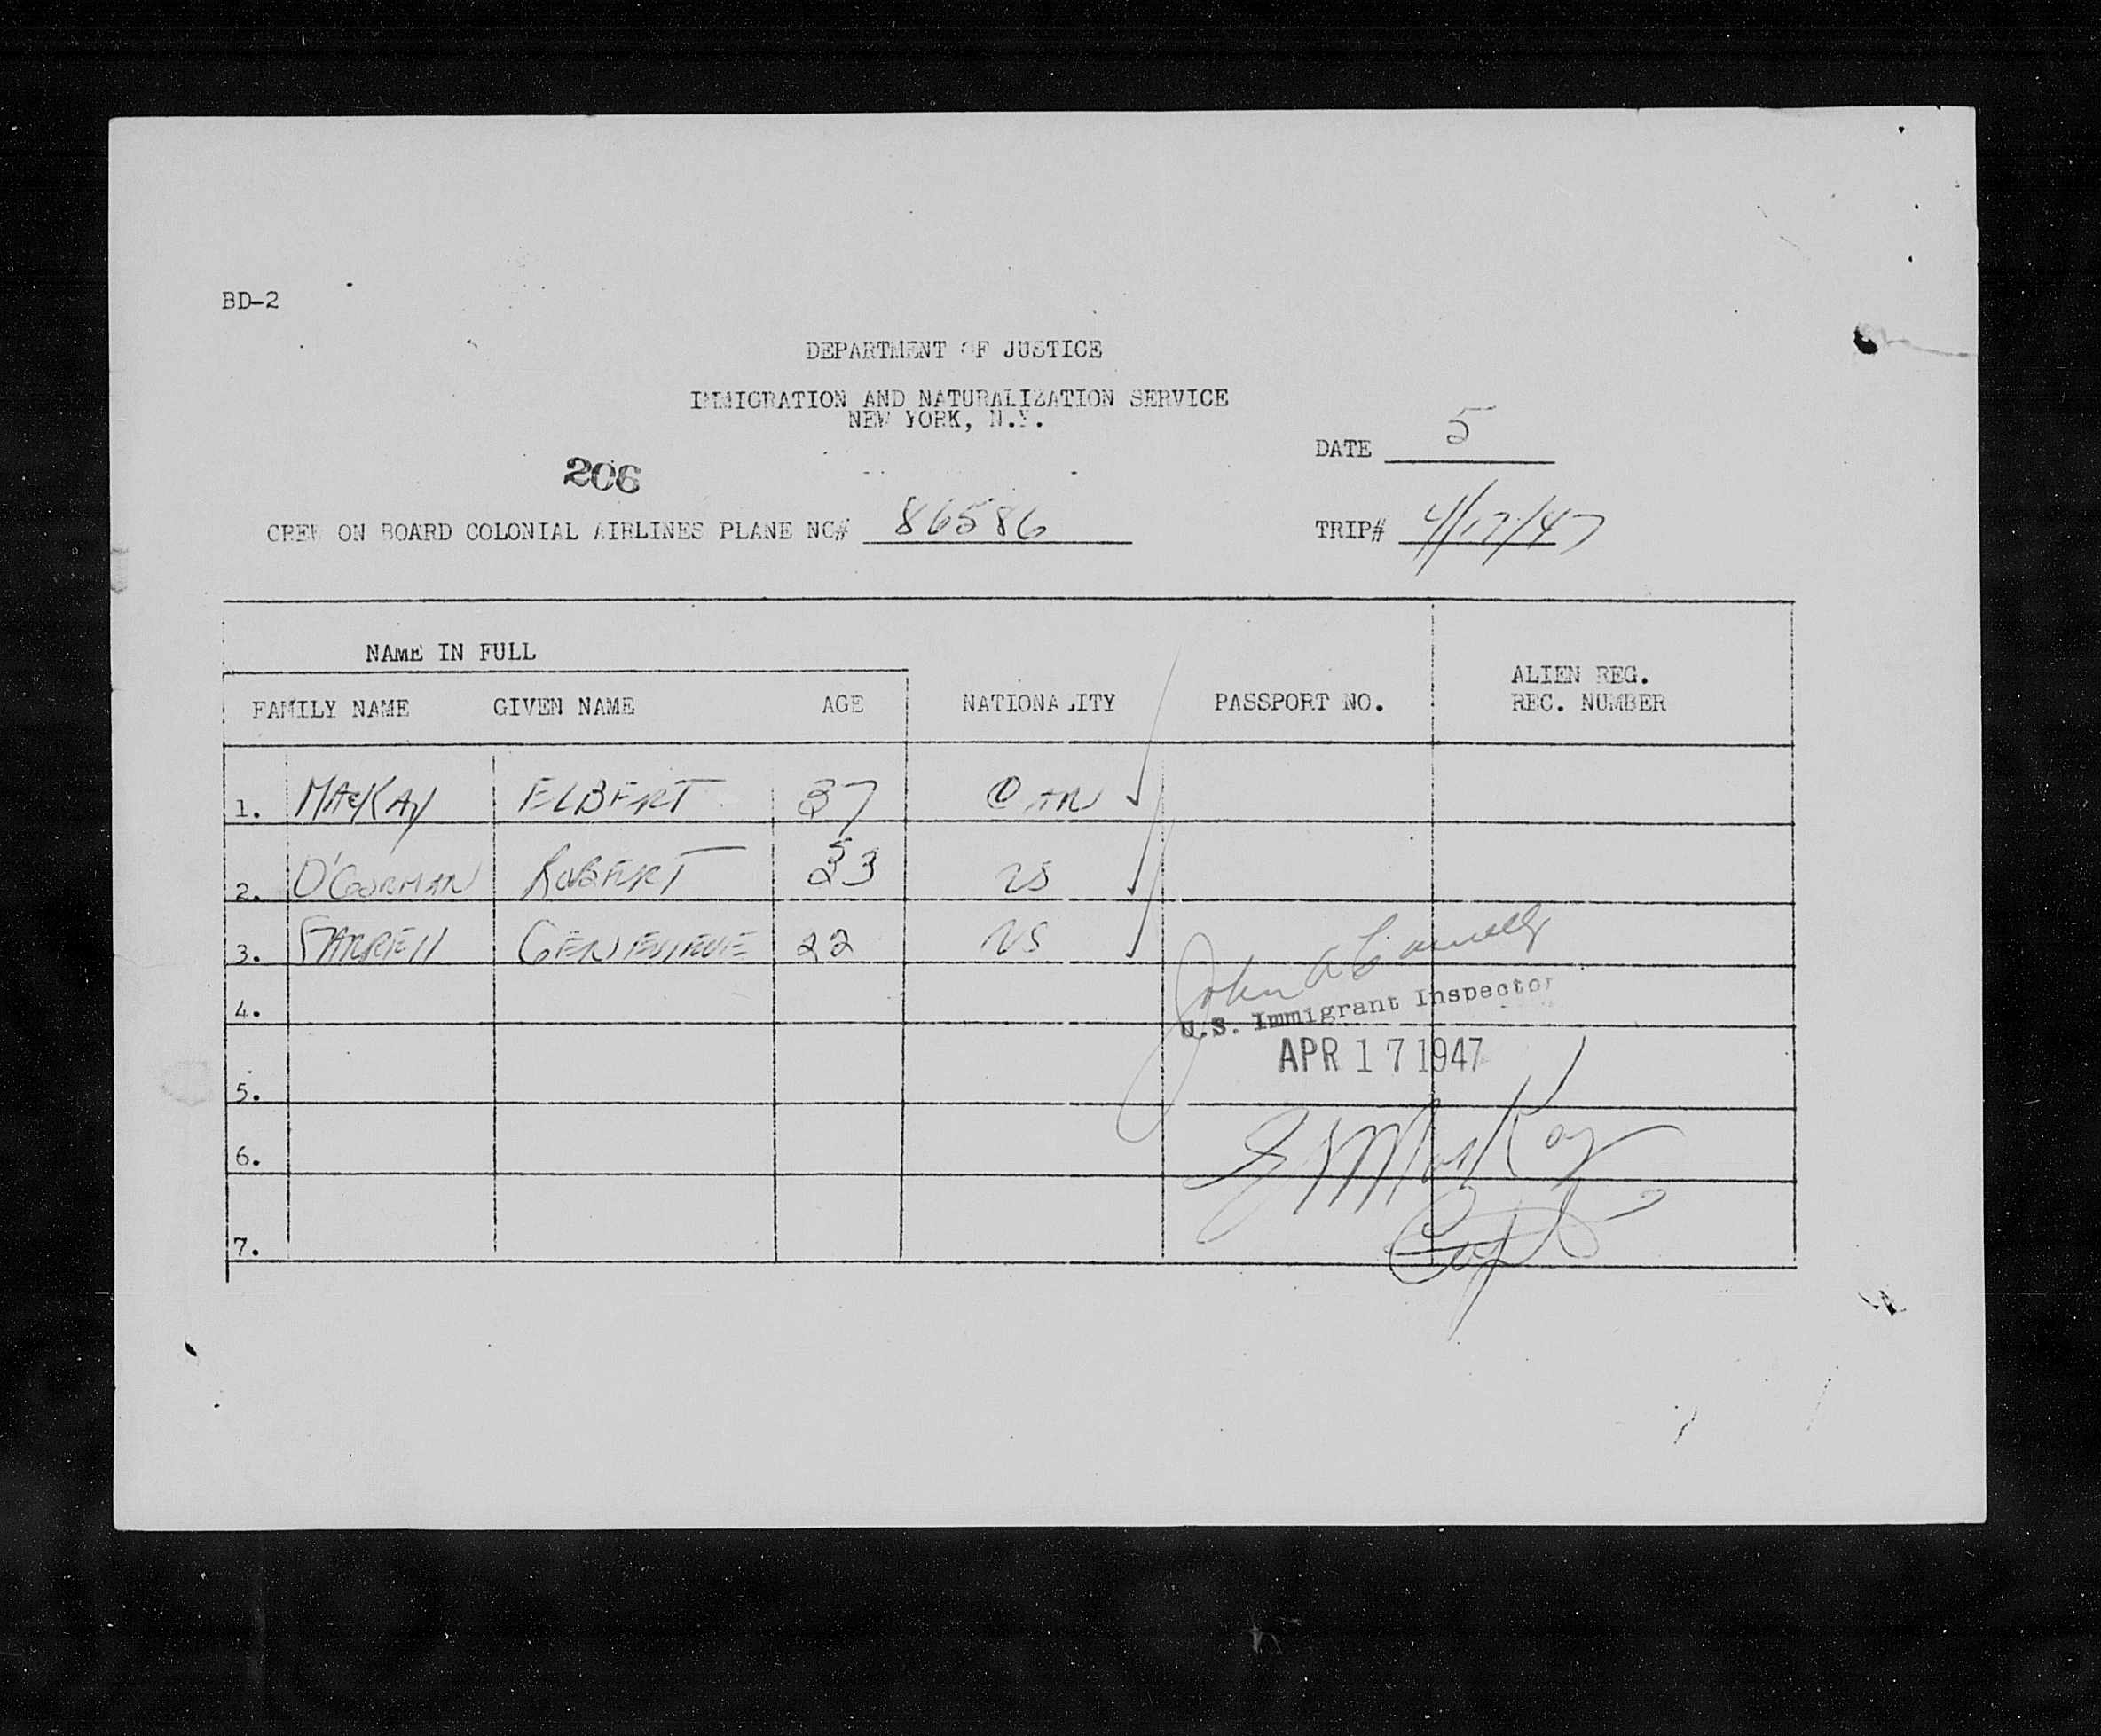 BD-2
DEPARTMENT OF JUSTICE
IMMIGRATION AND NATURALIZATION SERVICE
NEW YORK, N.Y.
DATE 5
206
CREW ON BOARD COLONIAL AIRLINES PLANE NC# 86586 TRIP# 4/17/47
NAME IN FULL
FAMILY NAME GIVEN NAME AGE NATIONALITY PASSPORT NO. ALIEN REG. REC. NUMBER
1. MACKAY ELBERT 37 CAN
2. O'GORMAN ROBERT 23 US
3. FARRELL GENEVIEVE 22 US
John A
4.
U.S. Immigrant Inspector
APR 17 1947
5.
MacKay
6.
Capt
7.